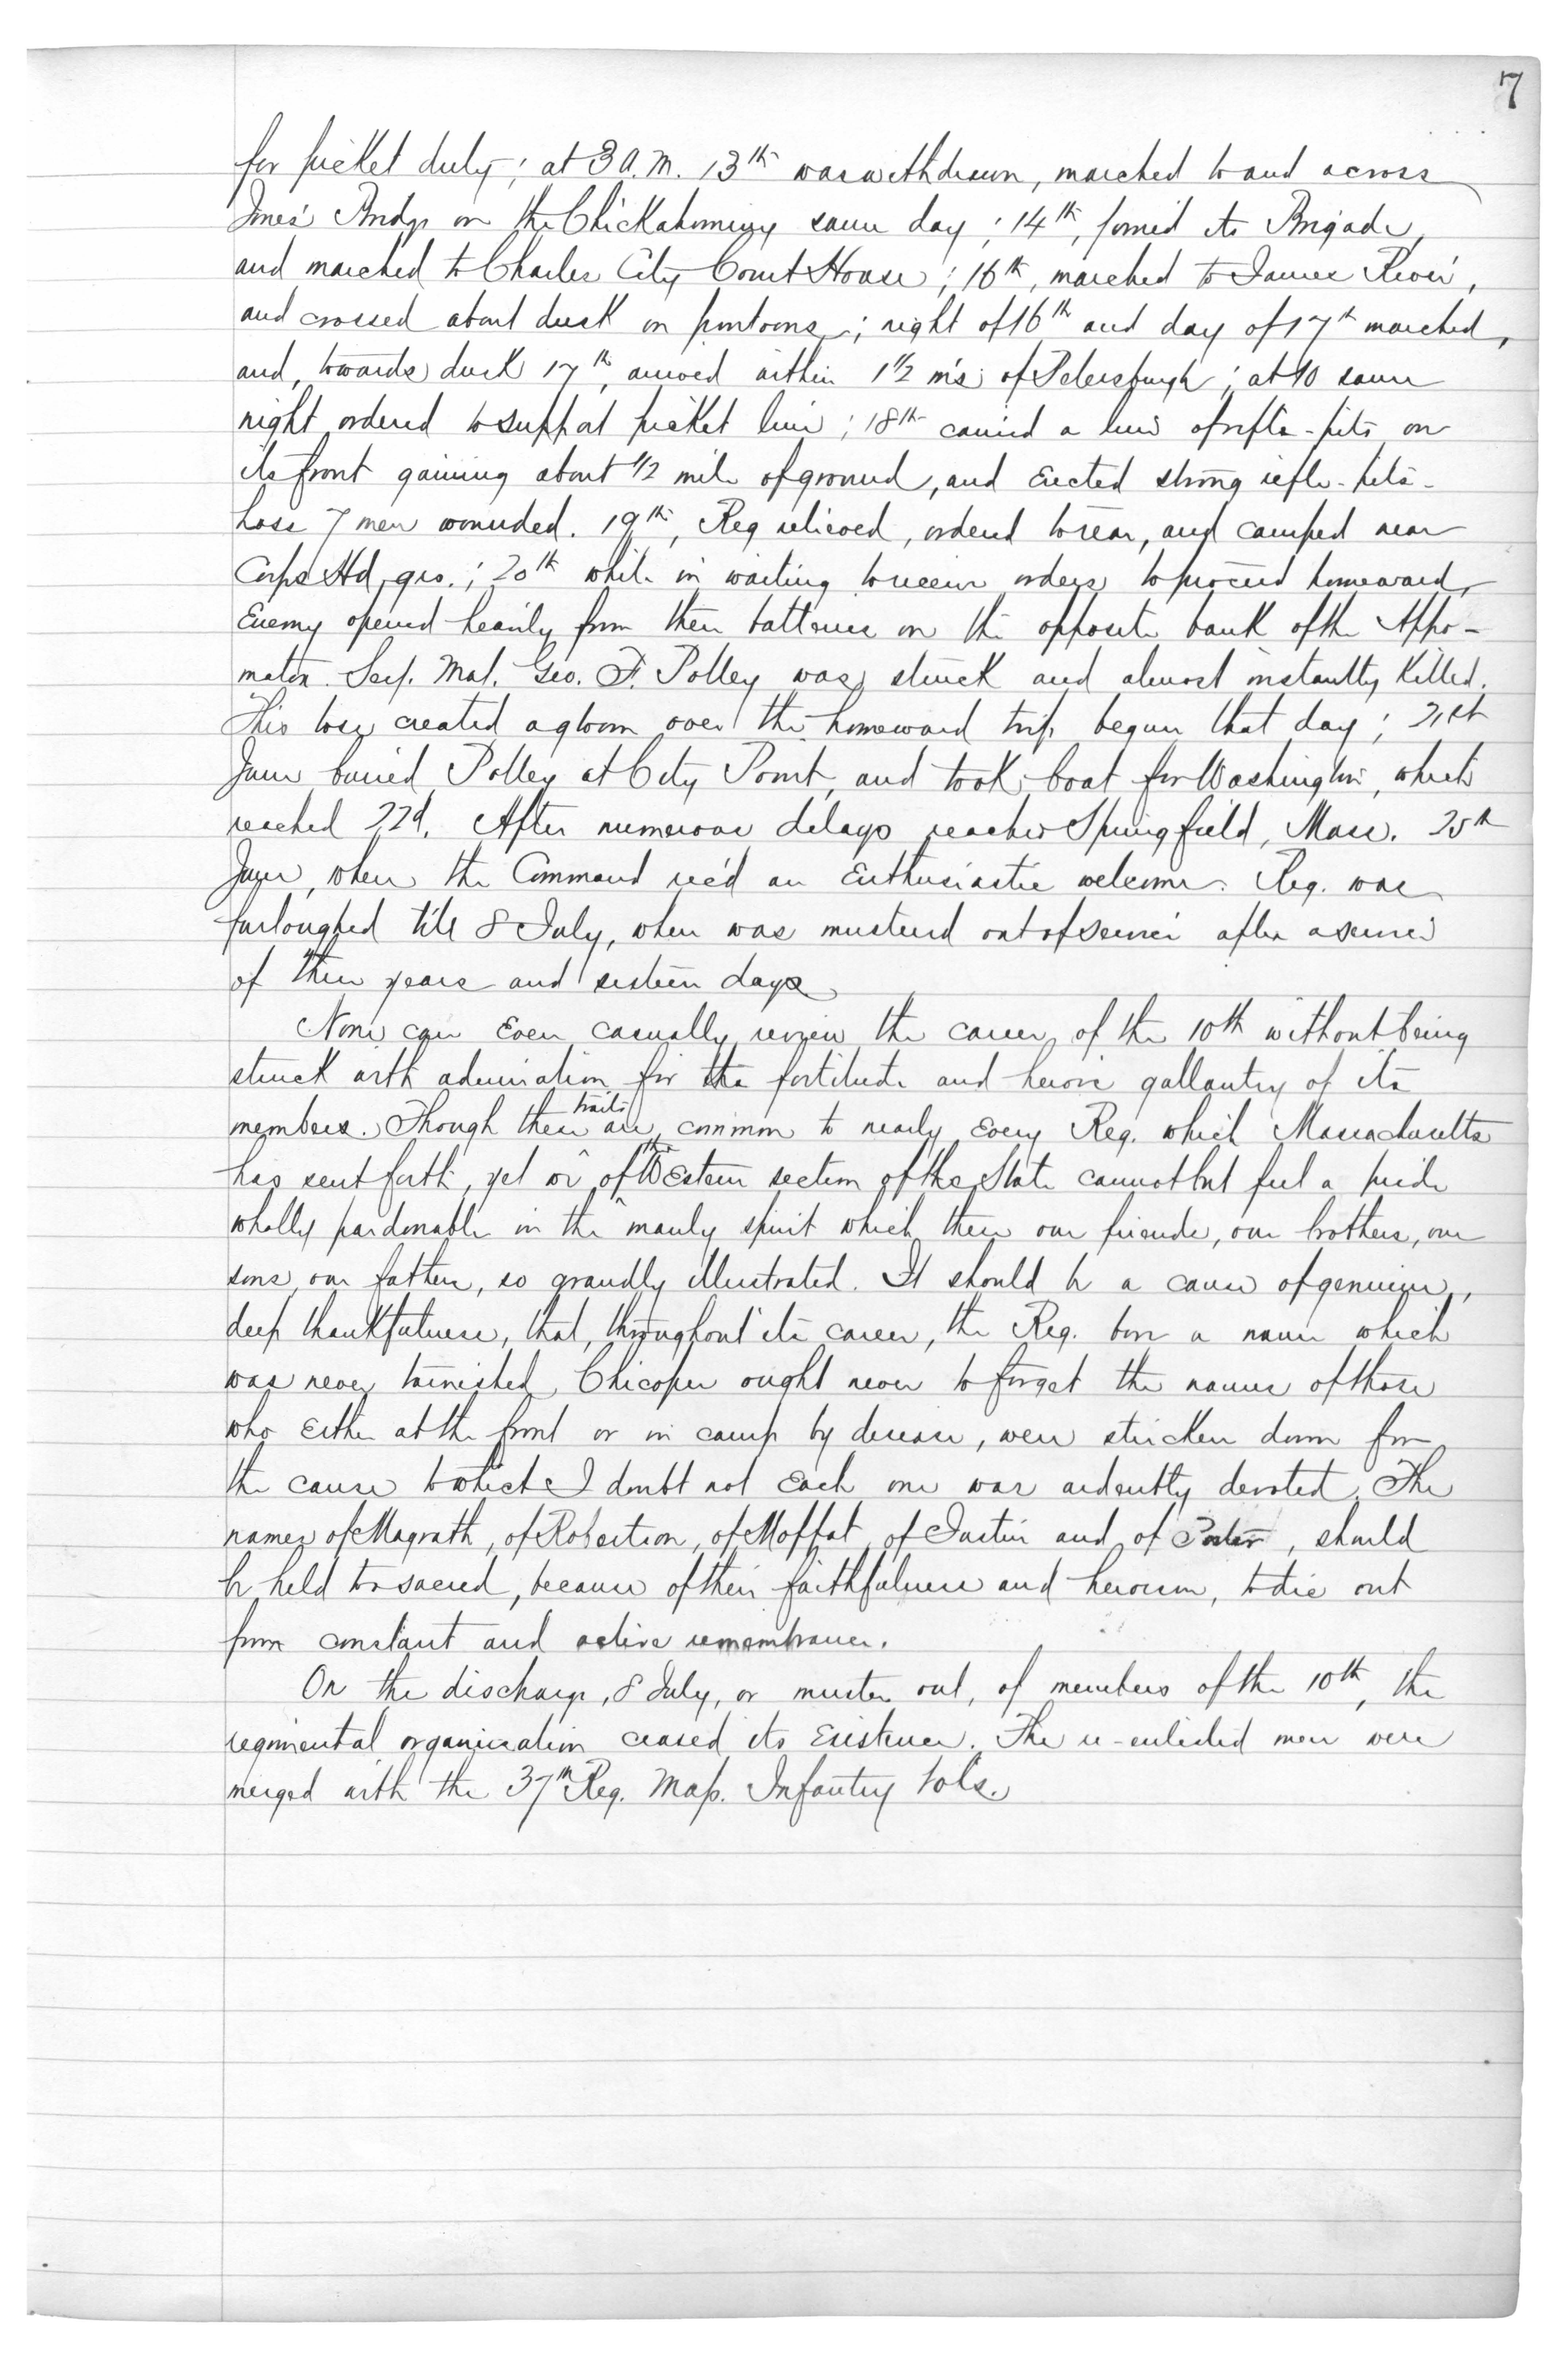 7
for picket duty; at 3 A.M. 13th was withdrawn, marched to and across
Jones' Bridge on the Chickahominy same day; 14th, joined its Brigade,
and marched to Charles City Court House; 16th, marched to James River,
and crossed about dusk on pontoons; night of 16th and day of 17th marched,
and, towards dusk 17th, arrived within 1 1/2 m's of Petersburgh; at 10 same
night ordered to support picket line; 18th carried a line of rifle-pits on
its front gaining about 1/2 mile of ground, and Erected strong rifle-pits-
Loss 7 men wounded. 19th, Reg relieved, ordered to rear, and camped near
Corps Hd. qrs.; 20th while in waiting to receive orders to proceed homeward,
Enemy opened heavily from their batteries on the opposite bank of the Appo-
matox. Serj. Maj. Geo. F. Polley was struck and almost instantly Killed.
This loss created a gloom over the homeward trip begun that day; 21st
June buried Polley at City Point, and took boat for Washington, which
reached 22d. After numerous delays reached Springfield, Mass. 25th
June, when the Command rec'd an Enthusiastic welcome. Reg. was
furloughed till 8 July, when was mustered out of service after a service
of three years and sixteen days
None can Even casually review the career of the 10th without being
struck with admiration for the fortitude and heroic gallantry of its
members. Though these traits are common to nearly Every Reg. which Massachusetts
has sent forth, yet we of the Western section of the State cannot but feel a pride
wholly pardonable in the manly spirit which these our friends, our brothers, our
sons, our fathers, so grandly illustrated. It should be a cause of genuine,
deep thankfulness, that, throughout its career, the Reg. bore a name which
was never tarnished. Chicopee ought never to forget the names of those
who Either at the front or in camp by disease, were stricken down for
the cause to which I doubt not Each one was ardently devoted. The
names of Magrath, of Robertson, of Moffat, of Justin and of , should
be held too sacred, because of their faithfulness and heroism, to die out
from constant and active remembrance.
On the discharge, 8 July, or muster out, of members of the 10th, the
regimental organization ceased its Existence. The re-enlisted men were
merged with the 37th Reg. Mass. Infantry Vols.